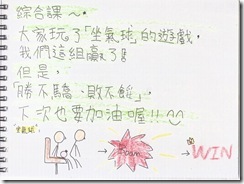 綜合課~。
大家玩了「坐氣球」的遊戲,
我們這組贏了!
但是,
「勝不驕、敗不餒」,
下次也要加油喔!!
坐氣球:
Boom
WIN